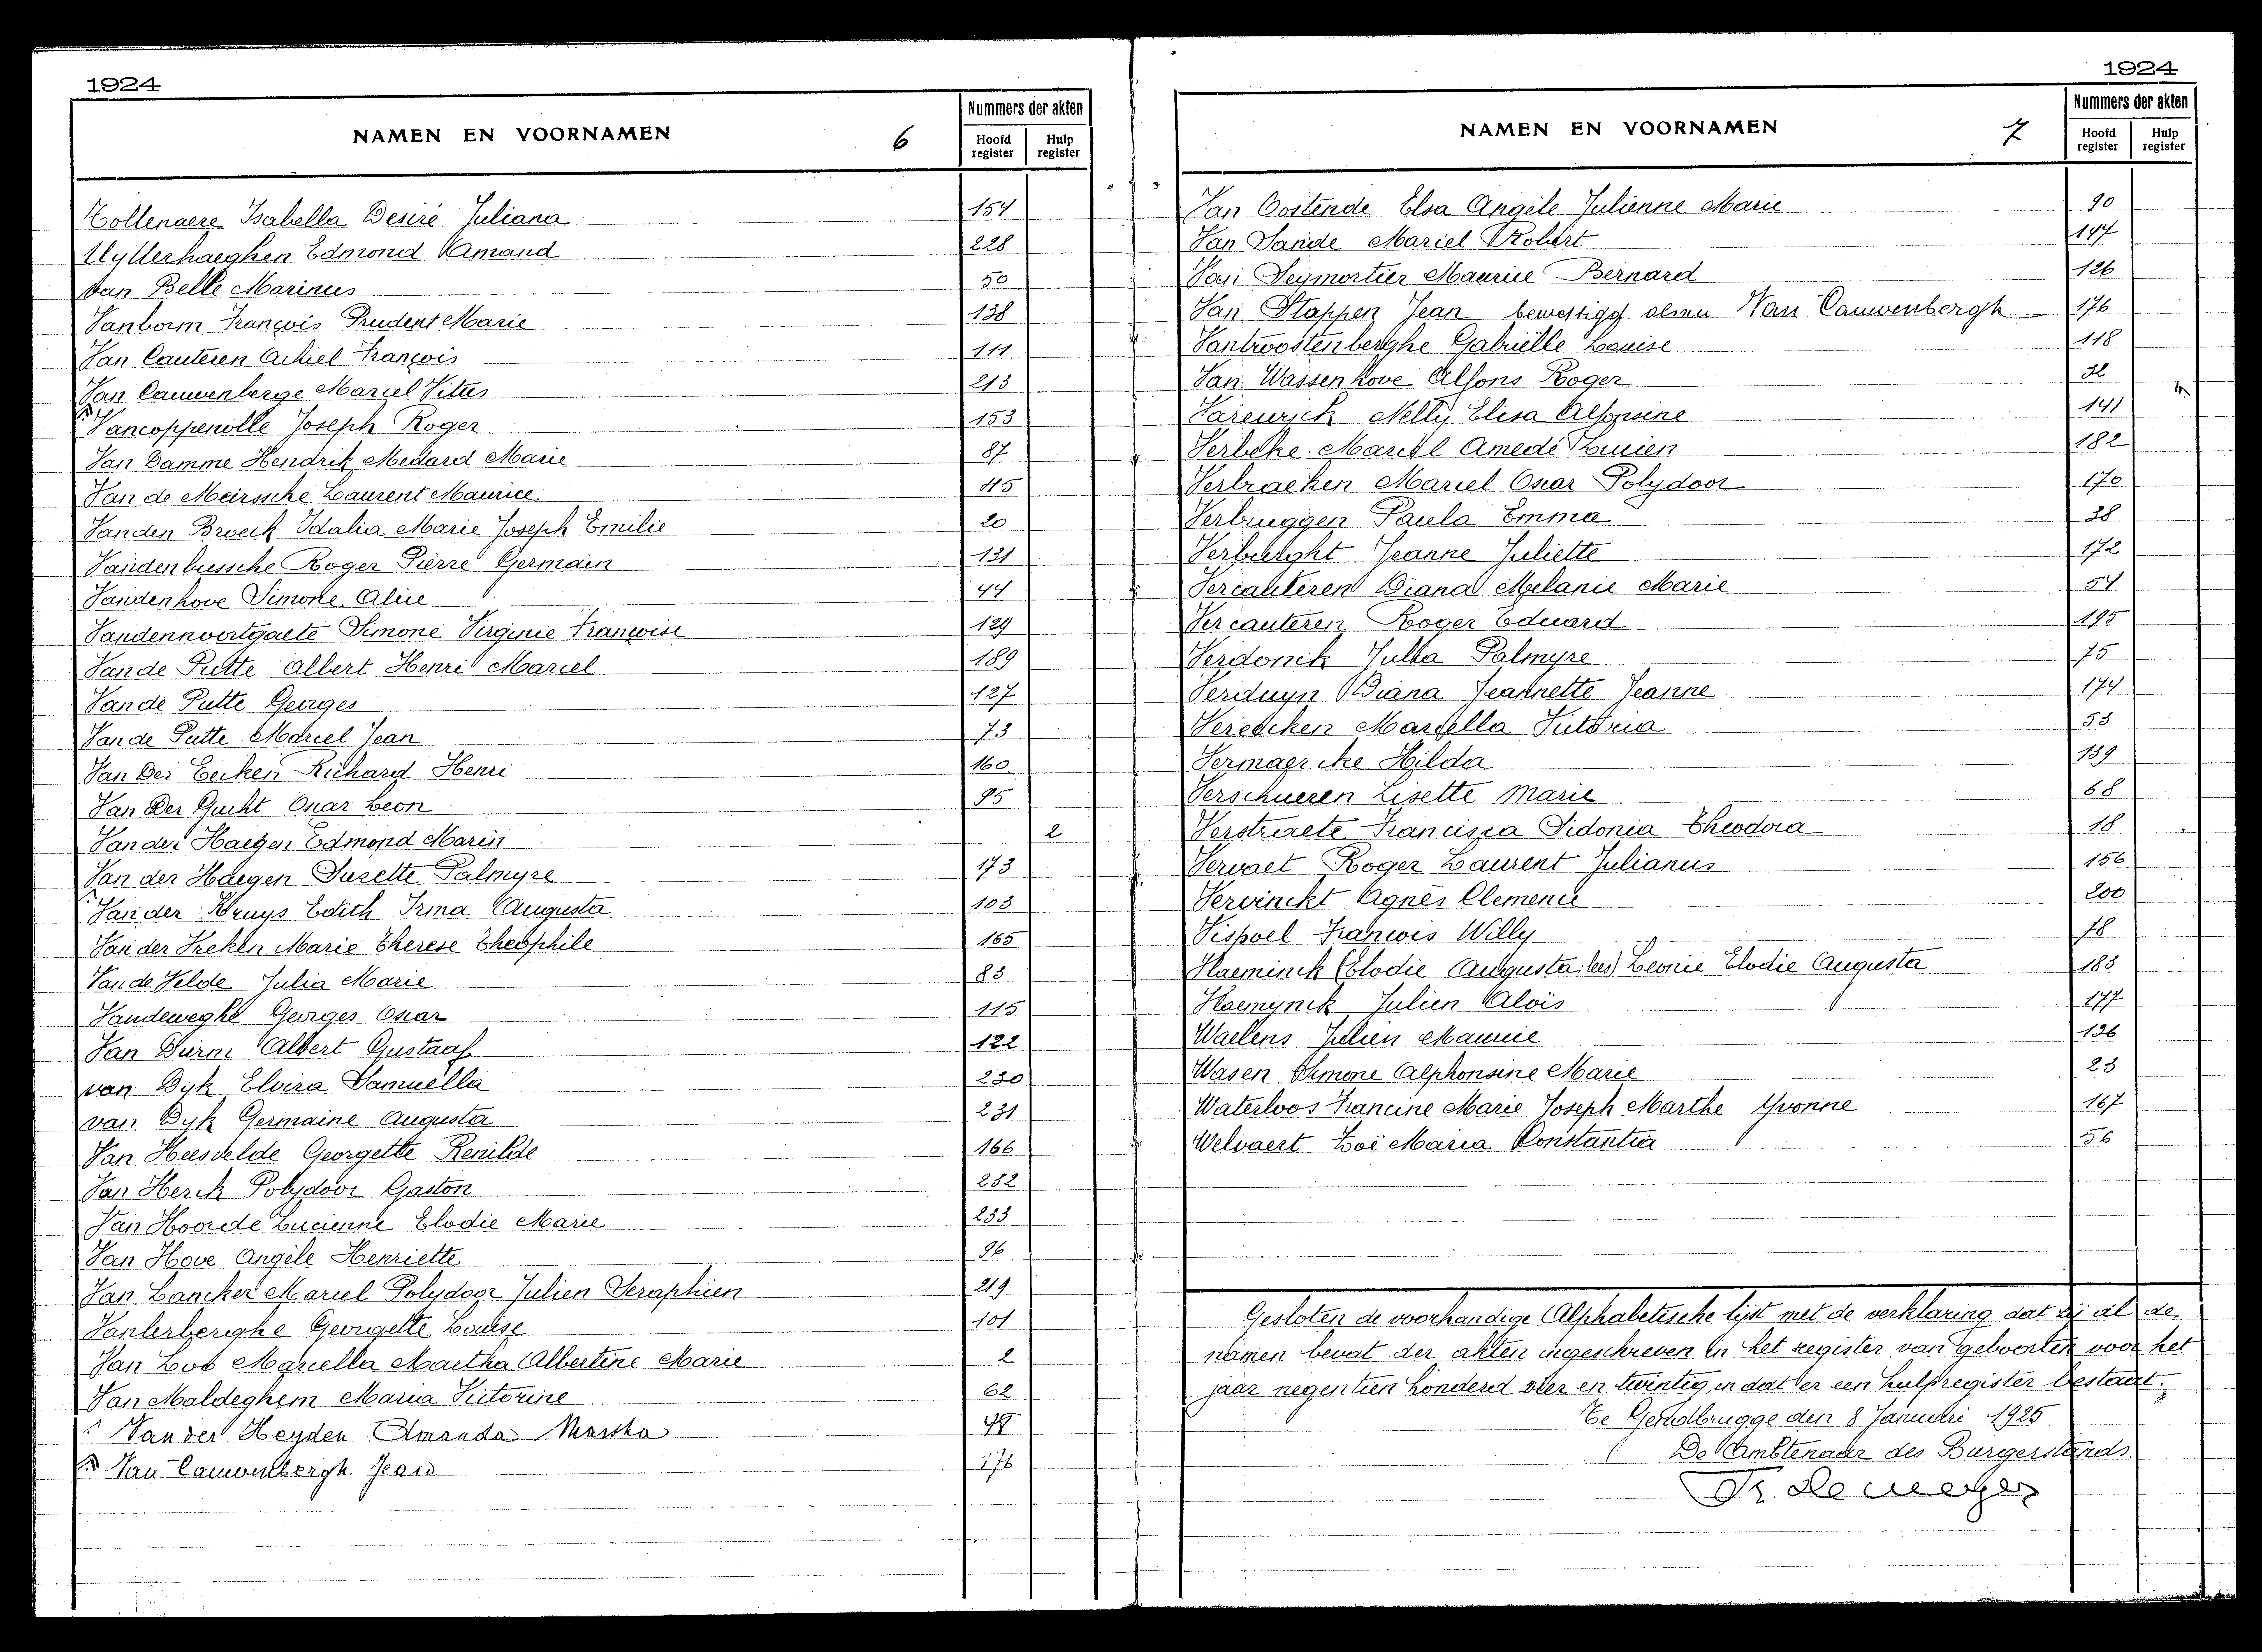 1924
NAMEN EN VOORNAMEN 6 Nummers der akten
Hoofd register Hulp register
Tollenaere Isabella Desiré Juliana 154
Uytterhaeghen Edmond Amand 228
van Belle Marinus 50
Vanborm François Prudent Marie 138
Van Cauteren Achiel François 111
Van Cauwenberge Marcel Vitus 213
Vancoppenolle Joseph Roger 153
Van Damme Hendrik Medard Marie 87
Van de Meirssche Laurent Maurice 45
Vanden Broeck Idalia Marie Joseph Emilie 20
Vandenbussche Roger Pierre Germain 131
Vandenhove Simone Alice 44
Vandennoortgaete Simone Virginie Françoise 129
Van de Putte Albert Henri Marcel 189
Van de Putte Georges 127
Van de Putte Marcel Jean 73
Van Der Eecken Richard Henri 160
Van Der Gucht Oscar Leon 95
Van der Haegen Edmond Marin 2
Van der Haegen Suzette Palmyre 173
Van der Kruys Edith Irma Augusta 103
Van der Vreken Marie Therese Theophile 165
Van de Velde Julia Marie 83
Vandeweghe Georges Oscar 115
Van Durm Albert Gustaaf 122
van Dyk Elvira Samuella 230
van Dyk Germaine Augusta 231
Van Heesvelde Georgette Renilde 166
Van Herck Polydoor Gaston 232
Van Hoorde Lucienne Elodie Marie 233
Van Hove Angèle Henriette 96
Van Lancker Marcel Polydoor Julien Seraphien 219
Vanlerberghe Georgette Louise 101
Van Loo Marcella Martha Albertine Marie 2
Van Maldeghem Maria Victorine 62
Van der Heyden Amanda Martha
Van Cauwenbergh Jean 176
1924
NAMEN EN VOORNAMEN 7 Nummers der akten
Hoofd register Hulp register
Van Oostende Elsa Angèle Julienne Marie 90
Van Sande Marcel Robert 147
Van Seymortier Maurice Bernard 126
Van Stappen Jean bevestigd als Van Cauwenbergh 176
Vantroostenberghe Gabriëlle Louise 118
Van Wassenhove Alfons Roger 32
Varewyck Nelly Elisa Alfonsine 141
Verbeke Marcel Amedé Lucien 182
Verbraeken Marcel Oscar Polydoor 170
Verbruggen Paula Emma 38
Verburght Jeanne Juliette 172
Vercauteren Diana Melanie Marie 54
Vercauteren Roger Eduard 195
Verdonck Julia Palmyre 75
Verduyn Diana Jeannette Jeanne 174
Verecken Marcella Victoria 53
Vermaercke Hilda 139
Verschueren Lisette Marie 68
Verstraete Francisca Sidonia Theodora 18
Vervaet Roger Laurent Julianus 156
Vervinckt Agnès Clemence 200
Vispoel François Willy 78
Vlaeminck (Elodie Augusta les) Leonie Elodie Augusta 183
Vlaemynck Julien Aloïs 177
Waelens Julien Maurice 136
Wasen Simone Alphonsine Marie 23
Waterloos Francine Marie Joseph Marthe Yvonne 167
Welvaert Zoë Maria Constantia 56
Gesloten de voorhandige Alphabetische lijst met de verklaring dat zij al de
namen bevat der akten ingeschreven in het register van geboorten voor het
jaar negentien honderd vier en twintig, en dat er een hulpregister bestaat.
Te Gentbrugge den 8 Januari 1925
De Ambtenaar des Burgerstands.